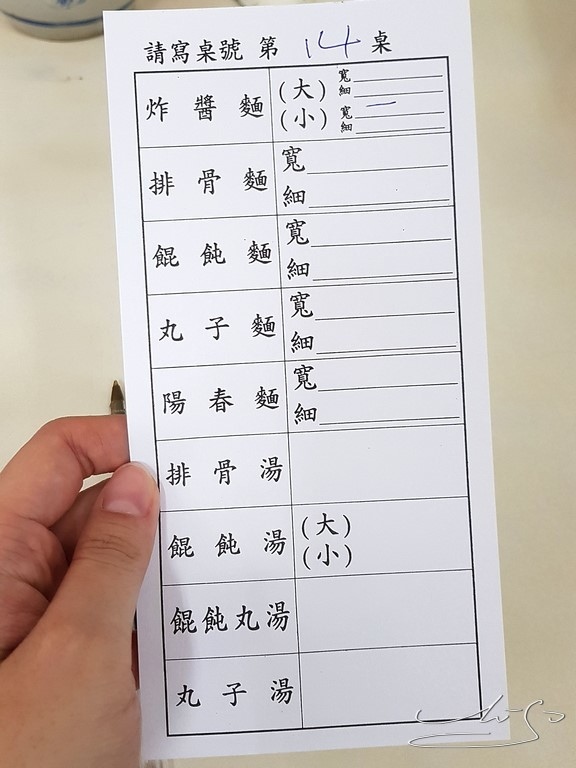 請寫桌號 第 14 桌
炸醬麵 (大) 寬
細
(小) 寬 一
細
排骨麵 寬
細
餛飩麵 寬
細
丸子麵 寬
細
陽春麵 寬
細
排骨湯
餛飩湯 (大)
(小)
餛飩丸湯
丸子湯